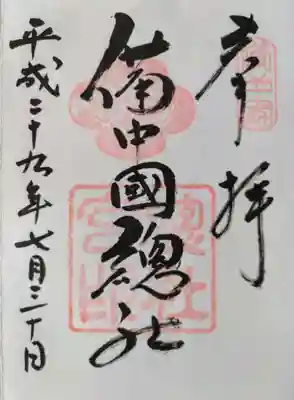 奉拝
備中國總社
平成二十九年七月三十日